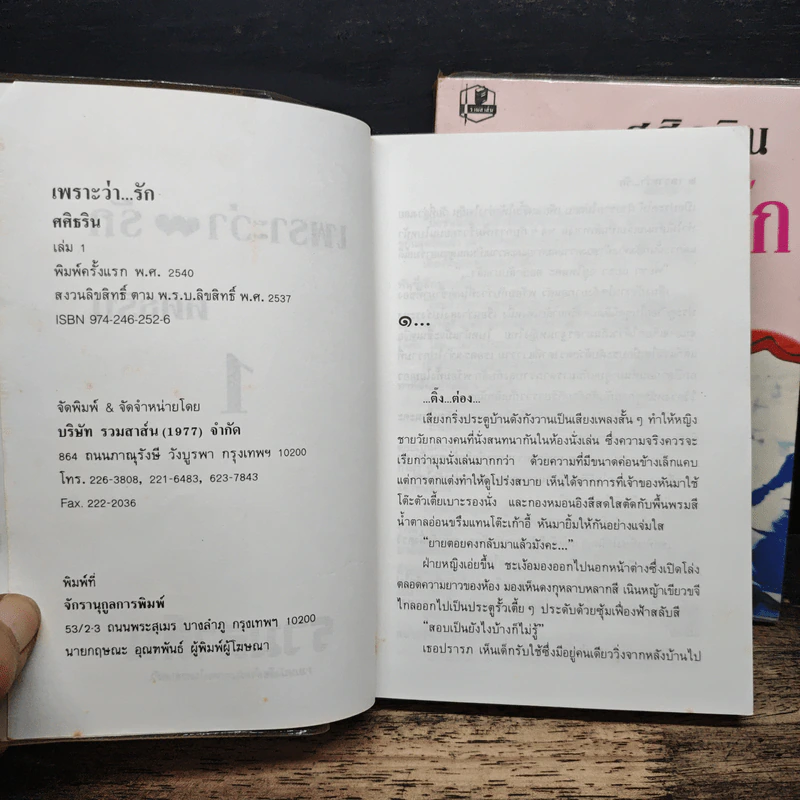 เพราะว่า...รัก
ศศิธริน
เล่ม 1
พิมพ์ครั้งแรก พ.ศ. 2540
สงวนลิขสิทธิ์ ตาม พ.ร.บ.ลิขสิทธิ์ พ.ศ. 2537
ISBN 974-246-252-6
จัดพิมพ์ & จัดจำหน่ายโดย
บริษัท รวมสาส์น (1977) จำกัด
864 ถนนภาณุรังษี วังบูรพา กรุงเทพฯ 10200
โทร. 226-3808, 221-6483, 623-7843
Fax. 222-2036
พิมพ์ที่
จักรานุกูลการพิมพ์
53/2-3 ถนนพระสุเมร บางลำภู กรุงเทพฯ 10200
นายกฤษณะ อุณฑพันธ์ ผู้พิมพ์ผู้โฆษณา
๑...
...ติ๊ง...ต่อง...
เสียงกริ่งประตูบ้านดังกังวานเป็นเสียงเพลงสั้น ๆ ทำให้หญิง
ชายวัยกลางคนที่นั่งสนทนากันในห้องนั่งเล่น ซึ่งความจริงควรจะ
เรียกว่ามุมนั่งเล่นมากกว่า ด้วยความที่มีขนาดค่อนข้างเล็กแคบ
แต่การตกแต่งทำให้ดูโปร่งสบาย เห็นได้จากการที่เจ้าของหันมาใช้
โต๊ะตัวเตี้ยเบาะรองนั่ง และกองหมอนอิงสีสดใสตัดกับพื้นพรมสี
น้ำตาลอ่อนขรึมแทนโต๊ะเก้าอี้ หันมายิ้มให้กันอย่างแจ่มใส
"ยายตอยคงกลับมาแล้วมังคะ..."
ฝ่ายหญิงเอ่ยขึ้น ชะเง้อมองออกไปนอกหน้าต่างซึ่งเปิดโล่ง
ตลอดความยาวของห้อง มองเห็นดงกุหลาบหลากสี เนินหญ้าเขียวขจี
ไกลออกไปเป็นประตูรั้วเตี้ย ๆ ประดับด้วยซุ้มเฟื่องฟ้าสลับสี
"สอบเป็นยังไงบ้างก็ไม่รู้"
เธอปรารภ เห็นเด็กรับใช้ซึ่งมีอยู่คนเดียววิ่งจากหลังบ้านไป
รวมสาส์น